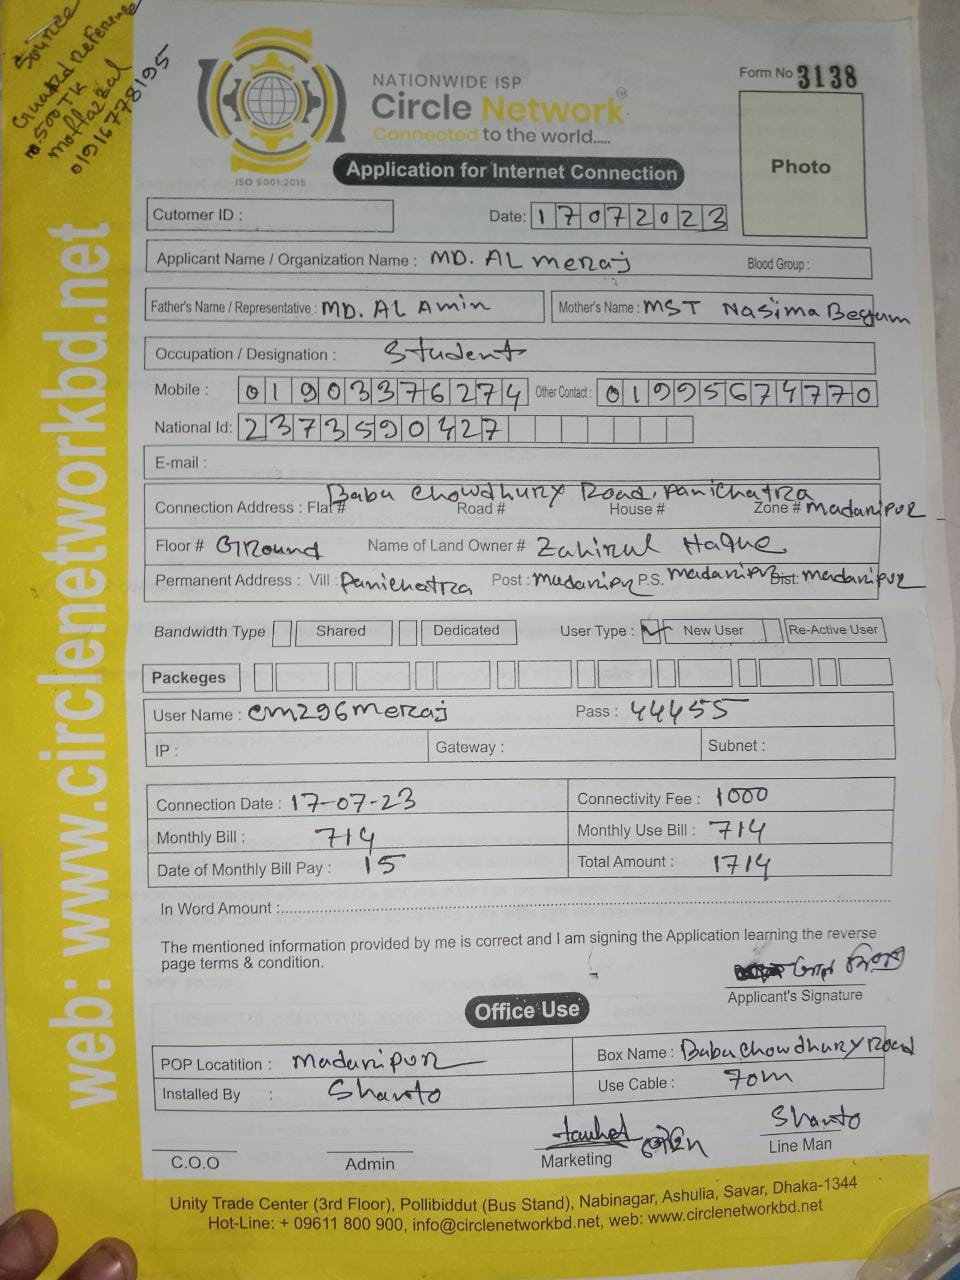 Source
Guard Reference
500 TK
moffazzal
01916778195
web: www.circlenetworkbd.net
NATIONWIDE ISP
Circle Network
TM
Connected to the world.....
ISO 9001:2015
Application for Internet Connection
Form No 3138
Photo
Cutomer ID :
Date: 17072023
Applicant Name / Organization Name : MD. AL meraj Blood Group :
Father's Name / Representative : MD. AL Amin Mother's Name : MST Nasima Begum
Occupation / Designation : Student
Mobile : 01903376274 Other Contact : 01995674770
National Id: 2373590427
E-mail :
Babu Chowdhury Road, Panichatra
Connection Address : Flat # Road # House # Zone # madaripur
Floor # Ground Name of Land Owner # Zahirul Haque
Permanent Address : Vill : Panichatra Post : madaripur P.S. madaripur Dist: madaripur
Bandwidth Type Shared Dedicated User Type : New User Re-Active User
Packeges
User Name : cm296meraj Pass : 44455
IP : Gateway : Subnet :
Connection Date : 17-07-23 Connectivity Fee : 1000
Monthly Bill : 714 Monthly Use Bill : 714
Date of Monthly Bill Pay : 15 Total Amount : 1714
In Word Amount :
The mentioned information provided by me is correct and I am signing the Application learning the reverse
page terms & condition.
Applicant's Signature
Office Use
POP Locatition : madaripur Box Name : Babu Chowdhury Road
Installed By : Shanto Use Cable : 70m
tauhet Shanto
C.O.O Admin Marketing Line Man
Unity Trade Center (3rd Floor), Pollibiddut (Bus Stand), Nabinagar, Ashulia, Savar, Dhaka-1344
Hot-Line: + 09611 800 900, info@circlenetworkbd.net, web: www.circlenetworkbd.net